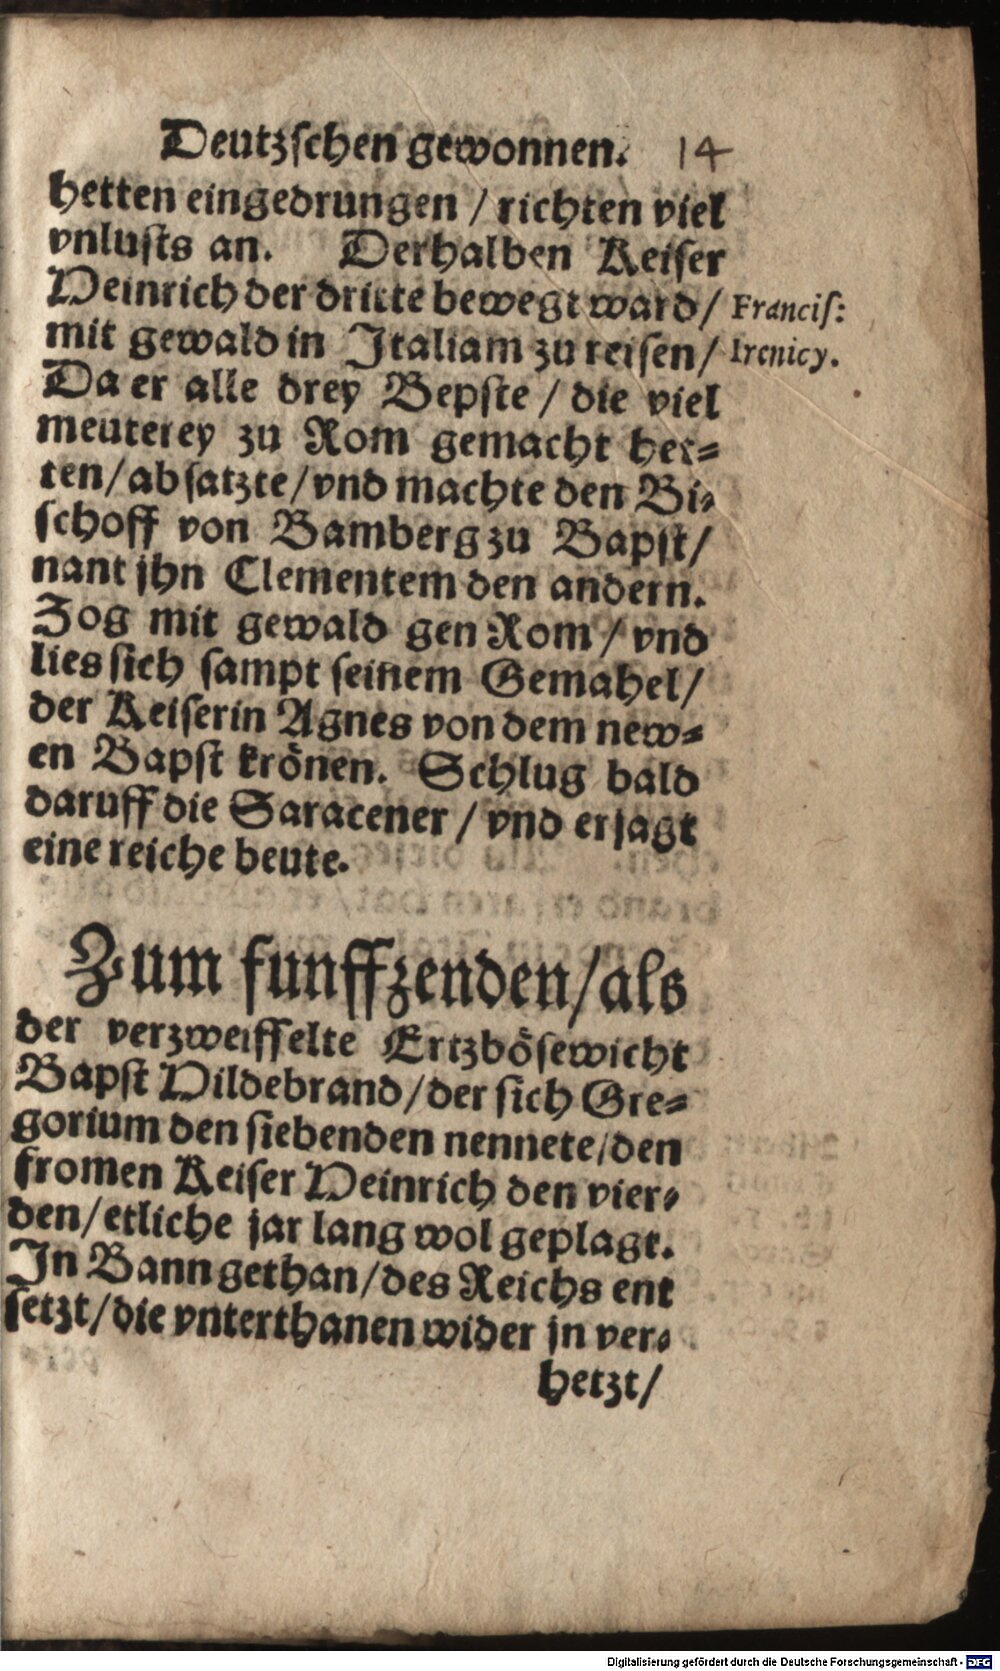 Deutzschen gewonnen. 14
hetten eingedrungen / richten viel
vnlusts an. Derhalben Keiser
Heinrich der dritte bewegt ward / Francis:
mit gewald in Italiam zu reisen / Irenicy.
Da er alle drey Bepste / die viel
meuterey zu Rom gemacht het=
ten / absatzte / vnd machte den Bi=
schoff von Bamberg zu Bapst /
nant jhn Clementem den andern.
Zog mit gewald gen Rom / vnd
lies sich sampt seinem Gemahel /
der Keiserin Agnes von dem new=
en Bapst krönen. Schlug bald
daruff die Saracener / vnd erjagt
eine reiche beute.
Zum funffzenden / als
der verzweiffelte Ertzbösewicht
Bapst Hildebrand / der sich Gre=
gorium den siebenden nennete / den
fromen Keiser Heinrich den vier=
den / etliche jar lang wol geplagt.
In Bann gethan / des Reichs ent
setzt / die vnterthanen wider jn ver=
hetzt /
Digitalisierung gefördert durch die Deutsche Forschungsgemeinschaft - DFG